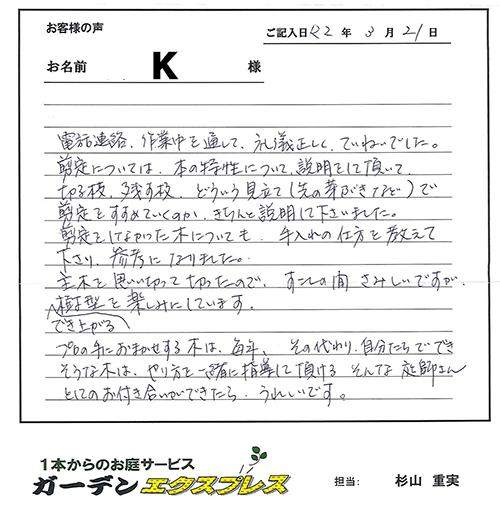 お客様の声
ご記入日 R2 年 3 月 21 日
お名前 K 様
電話連絡、作業中を通して、礼儀正しく、ていねいでした。
剪定については、木の特性について、説明をして頂いて、
切る枝、残す枝、どういう見立て(先の芽ぶきなど)で
剪定をすすめていくのか、きちんと説明して下さいました。
剪定をしなかった木についても、手入れの仕方を教えて
下さり、参考になりました。
主木を思い切って切ったので、すこしの間さみしいですが、
樹型を楽しみにしています。
でき上がる
プロの手におまかせする木は、毎年、その代わり、自分たちでで き
そうな木は、やり方を一緒に指導して頂ける そんな庭師さん
としてのお付き合いができたら、うれしいです。
1本からのお庭サービス
ガーデンエクスプレス
担当: 杉山 重実